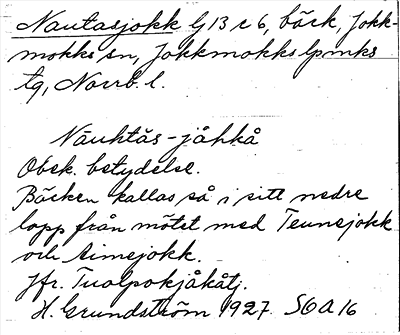 Nautasjokk lj 13 r 6, bäck, Jokk-
mokks sn, Jokkmokks lpmks
tg, Norrb. l.
Nāuhtăs-jåhkå
Obek. betydelse.
Bäcken kallas så i sitt nedre
lopp från mötet med Teunsjokk
och Aimejokk.
Jfr. Tualpokjåkåtj.
H. Grundström 1927. SOA 16